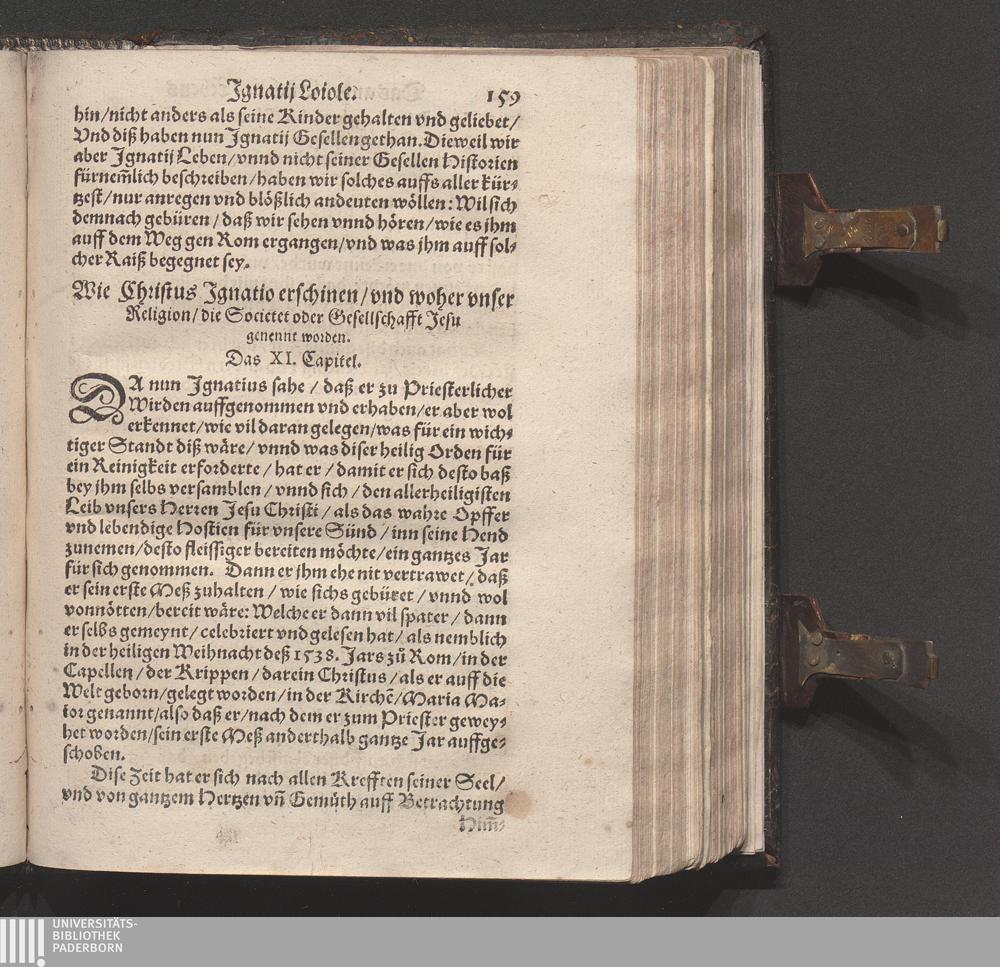 Ignatij Loiole. 159
hin/nicht anders als seine Kinder gehalten vnd geliebet/
Vnd diß haben nun Ignatij Gesellen gethan. Dieweil wir
aber Ignatij Leben/vnnd nicht seiner Gesellen Historien
fürnem̃lich beschreiben/haben wir solches auffs aller kür⸗
tzest/nur anregen vnd blößlich andeuten wöllen: Wil sich
demnach gebüren/daß wir sehen vnnd hören/wie es jhm
auff dem Weg gen Rom ergangen/vnd was jhm auff sol⸗
cher Raiß begegnet sey.
Wie Christus Ignatio erschinen/vnd woher vnser
Religion/die Societet oder Gesellschafft Jesu
genennt worden.
Das XI. Capitel.
DA nun Ignatius sahe/daß er zu Priesterlicher
Wirden auffgenommen vnd erhaben/er aber wol
erkennet/wie vil daran gelegen/was für ein wich⸗
tiger Standt diß wäre/vnnd was diser heilig Orden für
ein Reinigkeit erforderte/hat er/damit er sich desto baß
bey jhm selbs versamblen/vnnd sich/den allerheiligisten
Leib vnsers Herren Jesu Christi/als das wahre Opffer
vnd lebendige Hostien für vnsere Sünd/inn seine Hend
zunemen/desto fleissiger bereiten möchte/ein gantzes Jar
für sich genommen. Dann er jhm ehe nit vertrawet/daß
er sein erste Meß zuhalten/wie sichs gebüret/vnnd wol
vonnötten/bereit wäre: Welche er dann vil spater/dann
er selbs gemeynt/celebriert vnd gelesen hat/als nemblich
in der heiligen Weihnacht deß 1538. Jars zů Rom/in der
Capellen/der Krippen/darein Christus/als er auff die
Welt geborn/gelegt worden/in der Kirchẽ/Maria Ma⸗
ior genannt/also daß er/nach dem er zum Priester gewey⸗
het worden/sein erste Meß anderthalb gantze Jar auffge⸗
schoben.
Dise Zeit hat er sich nach allen Krefften seiner Seel/
vnd von gantzem Hertzen vñ Gemüth auff Betrachtung
Him̃⸗
UNIVERSITÄTS-
BIBLIOTHEK
PADERBORN